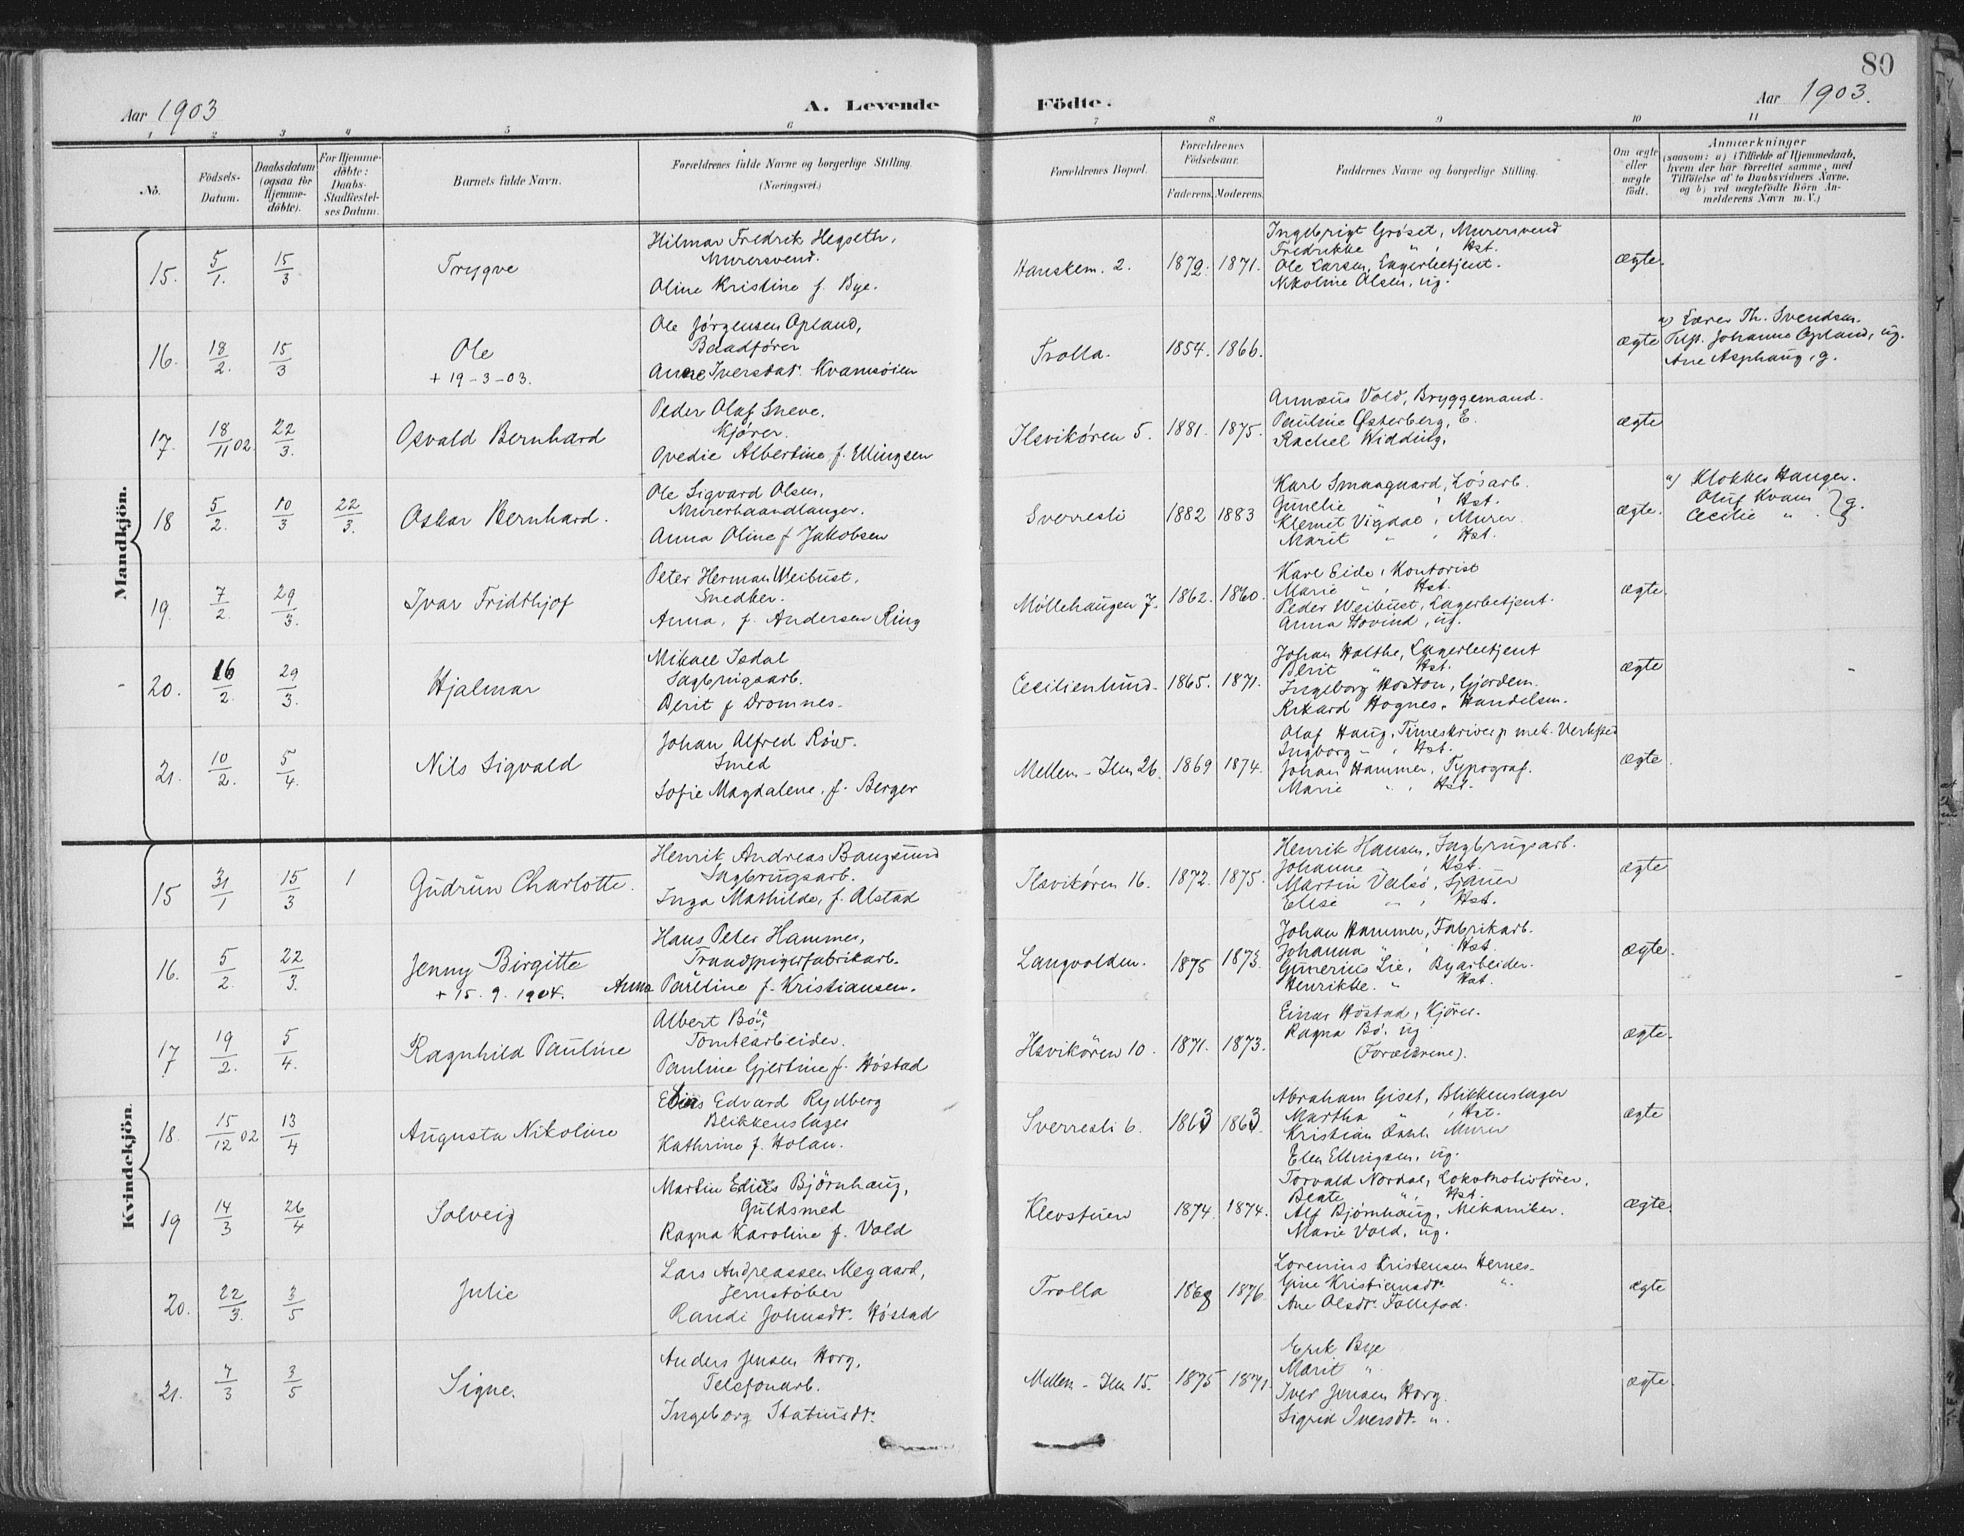 80
Aar 1903
A. Levende Födte.
Aar 1903.
1 2 3 4 5 6 7 8 9 10 11
No.
Födsels-Datum.
Daabsdatum (ogsaa for Hjemme-döbte).
For Hjemme-döbte: Daabs-Stadfæstel-ses Datum.
Barnets fulde Navn.
Forældrenes fulde Navne og borgerlige Stilling. (Næringsvei.)
Forældrenes Bopæl.
Forældrenes Födselsaar.
Faderens. Moderens.
Faddernes Navne og borgerlige Stilling.
Om ægte eller uægte født.
Anmærkninger
(saasom: a) i Tilfælde af Hjemmedaab, hvem der har forrettet samme, med Tilföielse af to Daabsvidners Navne. og b) ved uægtefödte Börn An-melderens Navn m. V.)
Mandkjön.
15. 5/1. 15/3 Trygve
Hilmar Fredrik Hegseth,
Murersvend.
Oline Kristine f. Bye.
Hanskem. 2. 1872. 1871.
Ingebrigt Gröset, Murersvend
Fredrikke " , Hst.
Ole Larsen, Lagerbetjent.
Nikoline Olsen, ug.
ægte.
16. 18/2. 15/3 Ole
+ 19-3-03.
Ole Jørgensen Opland,
Baadfører
Anne Iversdat. Kvamsöien
Trolla. 1854. 1866.
ægte
a) Lærer Th. Svendsen.
Fhp. Johanna Opland, ug.
Ane Asphaug, g.
17. 18/11 02. 22/3. Osvald Bernhard
Peder Olaf Sneve,
Kjører.
Ovedie Albertine f. Ellingsen
Ilsvikören 5. 1881. 1875.
Annæus Vold, Bryggemand.
Pauline Østerberg, E.
Rachel Widding,
ægte
18 5/2. 10/3 22/3. Oskar Bernhard.
Ole Sigvard Olsen,
Murerhaandlanger.
Anna Oline f Jakobsen
Sverresli 1882 1883
Karl Smaagaard, Løsarb.
Gunelie " , Hst.
Klemet Vigdal, Murer.
Marit " , Hst.
ægte.
a) Klokker Hanger.
Oluf Kvam
Cecilie " . } g.
19. 7/2. 29/3. Ivar Fridthjof
Peter Herman Weibust,
Snedker.
Anna, f. Andersen Ring
Møllehaugen 7. 1862. 1860.
Karl Eide, Kontorist
Marie " , Hst.
Peder Weibust, Lagerbetjent.
Anna Hovind, ug.
ægte.
20. 16/2. 29/3. Hjalmar
Mikael Isdal
Sagbrugsarb.
Berit f Dromnes.
Cecilienlund. 1865. 1871.
Johan Holthe, Lagerbetjent
Berit " Hst.
Ingeborg Hoston, Gjordem.
Rikard Hognes, Handelsm.
ægte
21. 10/2. 5/4. Nils Sigvald
Johan Alfred Röw.
Smed
Sofie Magdalene, f. Berger
Mellem-Ilen 26. 1869 1874.
Olaf Haug, Timeskriver p mek. Verksted
Ingborg " , Hst.
Johan Hammer, Typograf.
Marie " , Hst.
ægte.
Kvindekjön.
15 31/1 15/3 1 Gudrun Charlotte.
Henrik Andreas Bangsund
Sagbrugsarb.
Inga Mathilde, f. Alstad
Ilsvikören 16. 1872. 1875.
Henrik Hansen, Sagbrugsarb.
Johanne " , Hst.
Martin Valsö, Sjauer
Elise " , Hst.
ægte
16. 5/2. 22/3. Jenny Birgitte
+ 15. 9. 1904.
Hans Peter Hammer,
Trandpigerfabrikarb.
Anna Pauline f. Kristiansen.
Langvolden. 1875 1873.
Johan Hammer, Fabrikarb.
Johanna " , Hst.
Gunerius Lie, Byarbeider.
Henrikke. " Hst.
ægte.
17 19/2. 5/4. Ragnhild Pauline
Albert Böe,
Tomtearbeider.
Pauline Gjertine f. Høstad
Ilsvikören 10. 1871. 1873.
Einar Høstad, Kjörer.
Ragna Bö, ug
(Forældrene).
ægte.
18. 15/12 02 13/4 Augusta Nikoline
Elias Edvard Rydberg
Blikkenslager
Kathrine f. Holan.
Sverresli 6. 1863 1863.
Abraham Giset, Blikkenslager
Martha " , Hst.
Kristian Dahl, Murer
Elen Ellingsen, ug.
ægte
19 14/3 26/4 Solveig
Martin Edius Björnhaug,
Guldsmed
Ragna Karoline f. Vold
Klevstuen 1874. 1874.
Torvald Nordal, Lokomotivfører,
Beate " , Hst.
Alf Bjørnhaug, Mekaniker.
Marie Vold, ug.
ægte.
20. 22/3. 3/5 Julie
Lars Andreassen Megaard,
Jernstöber
Randi Johnsdt. Høstad
Trolla 1868 1876.
Lorenius Kristensen Hernes.
Gine Kristiansdt. "
Ane Olsdt. Follefod.
ægte
21. 7/3 3/5 Signe.
Anders Jensen Horg,
Telefonarb.
Ingeborg Statinsdt.
Mellem-Ilen 15. 1875 1871.
Erik Bye
Marit "
Iver Jensen Horg.
Sigrid Iversdt. ".
ægte.